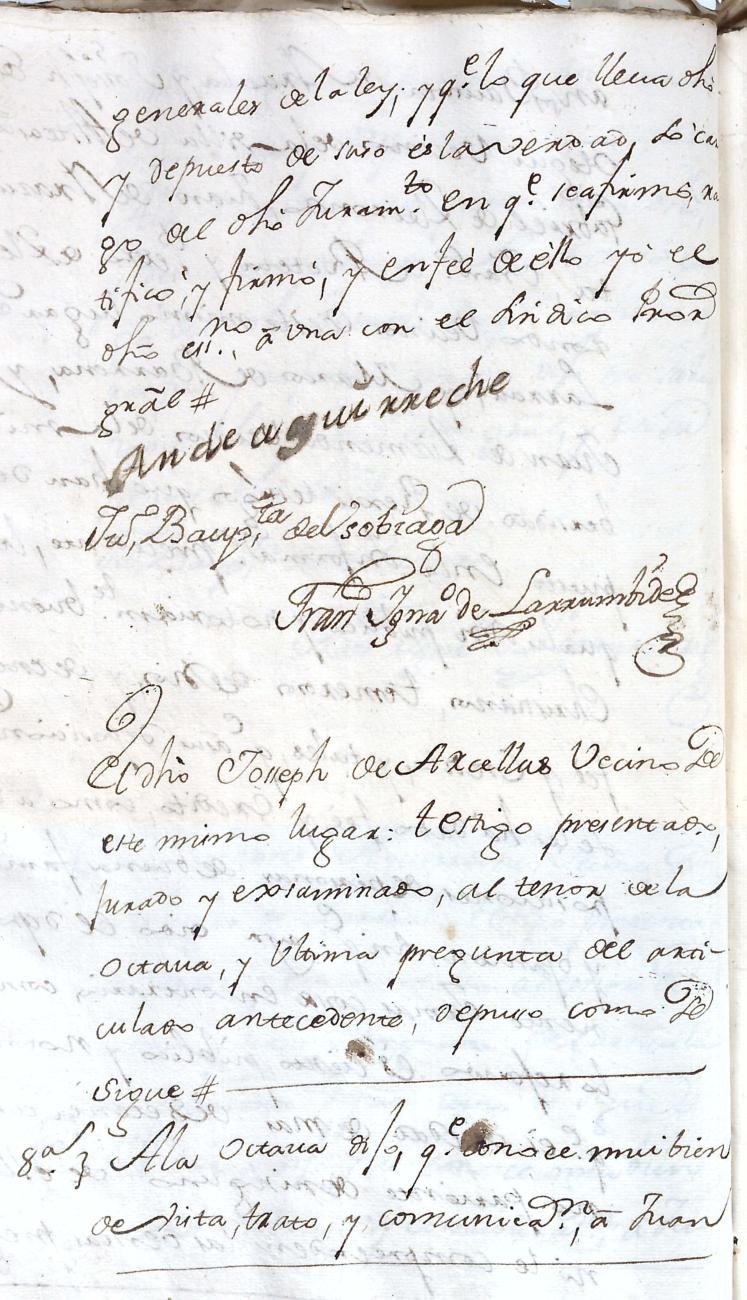 generales de la ley; y q.e lo que lleua dho
y depuesto de suso és la verdad, só car
go del dho Juram.to en q.e se afirmó, ra
tificó, y firmó, y en feé de éllo yó el
dho ess.no, á vna con el Sindico Pror
grãl #
Andre aguirreche
Ju.o Baup.ta de Vsobiaga
Fran.co Ygn.o de Larrumbide
El dho Joseph de Arcellus Vecino de
este mismo lugar: testigo presentado,
jurado y examinado, al tenor de la
Octaua, y Vltima pregunta del arti-
culado antecedente, depuso como se
sigue #
8.a A la Octaua dijo, q.e conoce mui bien
de vista, trato, y comunicac.n, á Juan